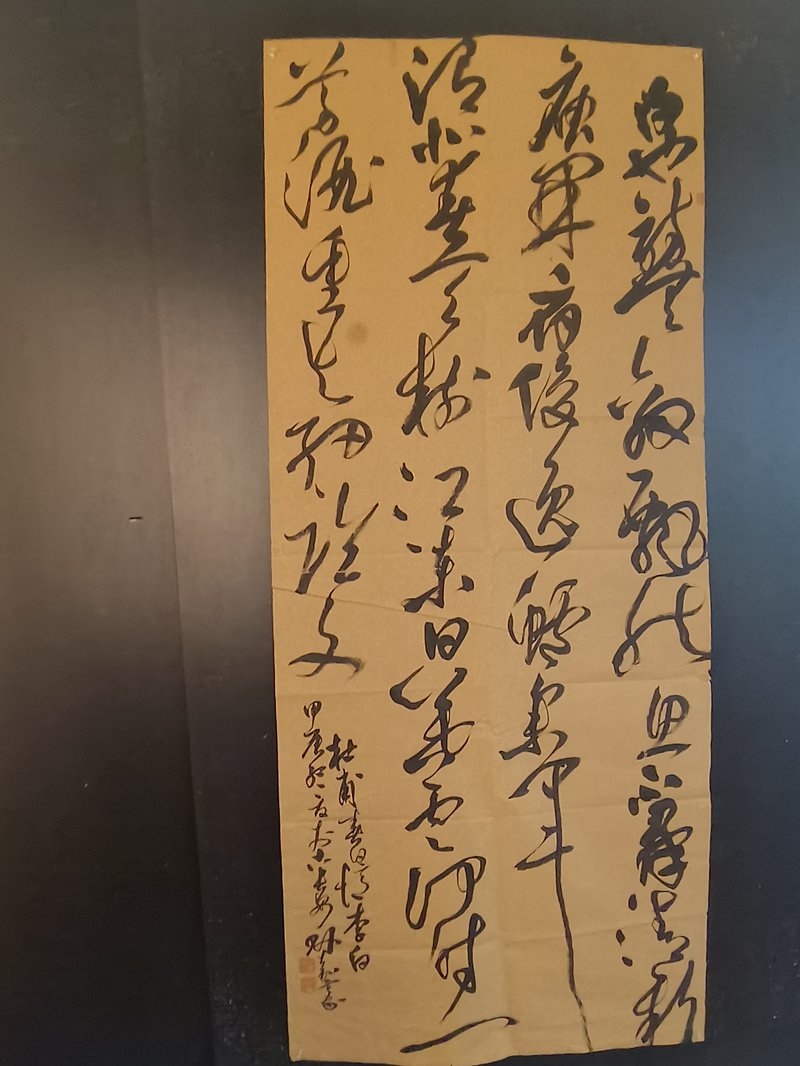 白也詩無敵飄然思不羣清新
庾開府俊逸鮑參軍
渭北春天樹江東日暮雲何時一
尊酒重與細論文
杜甫春日憶李白
甲辰於古長安